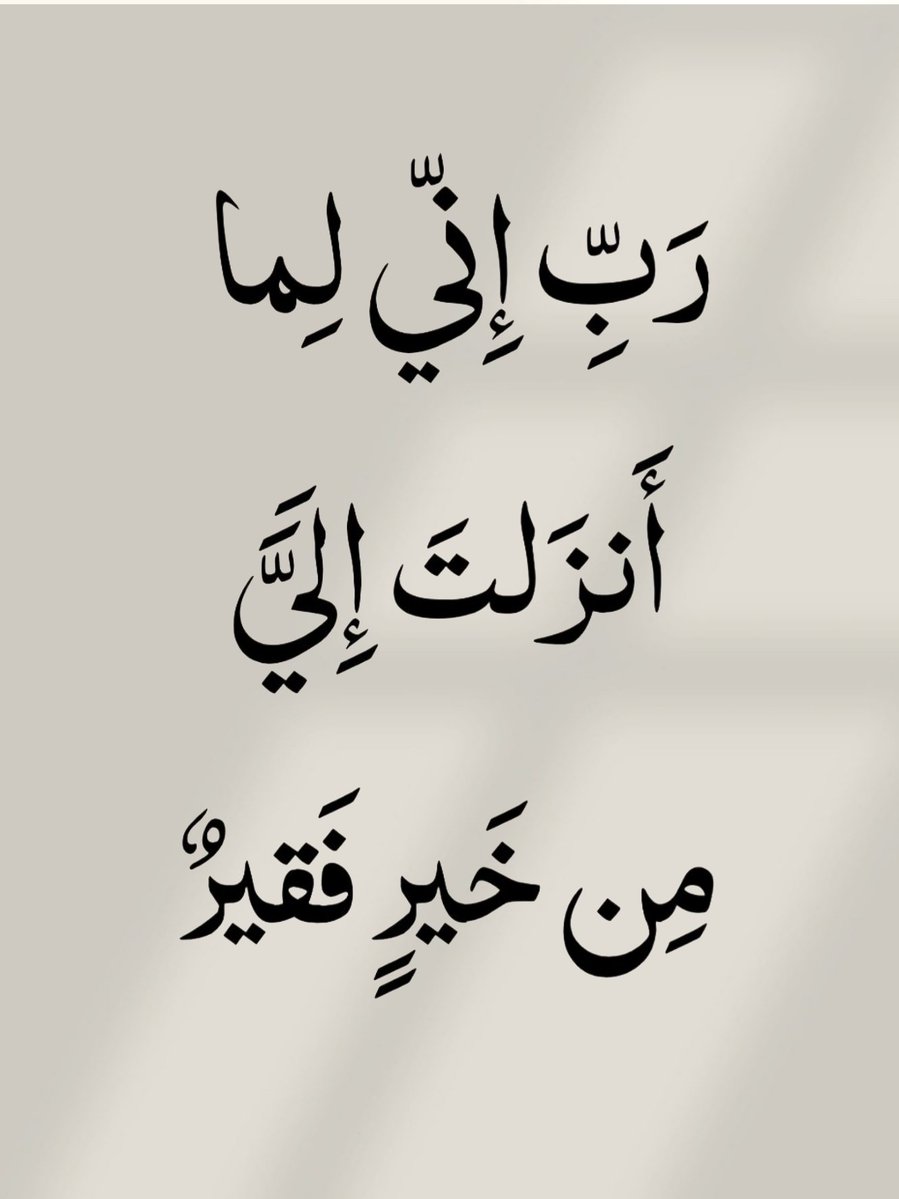 رَبِّ إِنّي لِما
أَنزَلتَ إِلَيَّ
مِن خَيرٍ فَقيرٌ